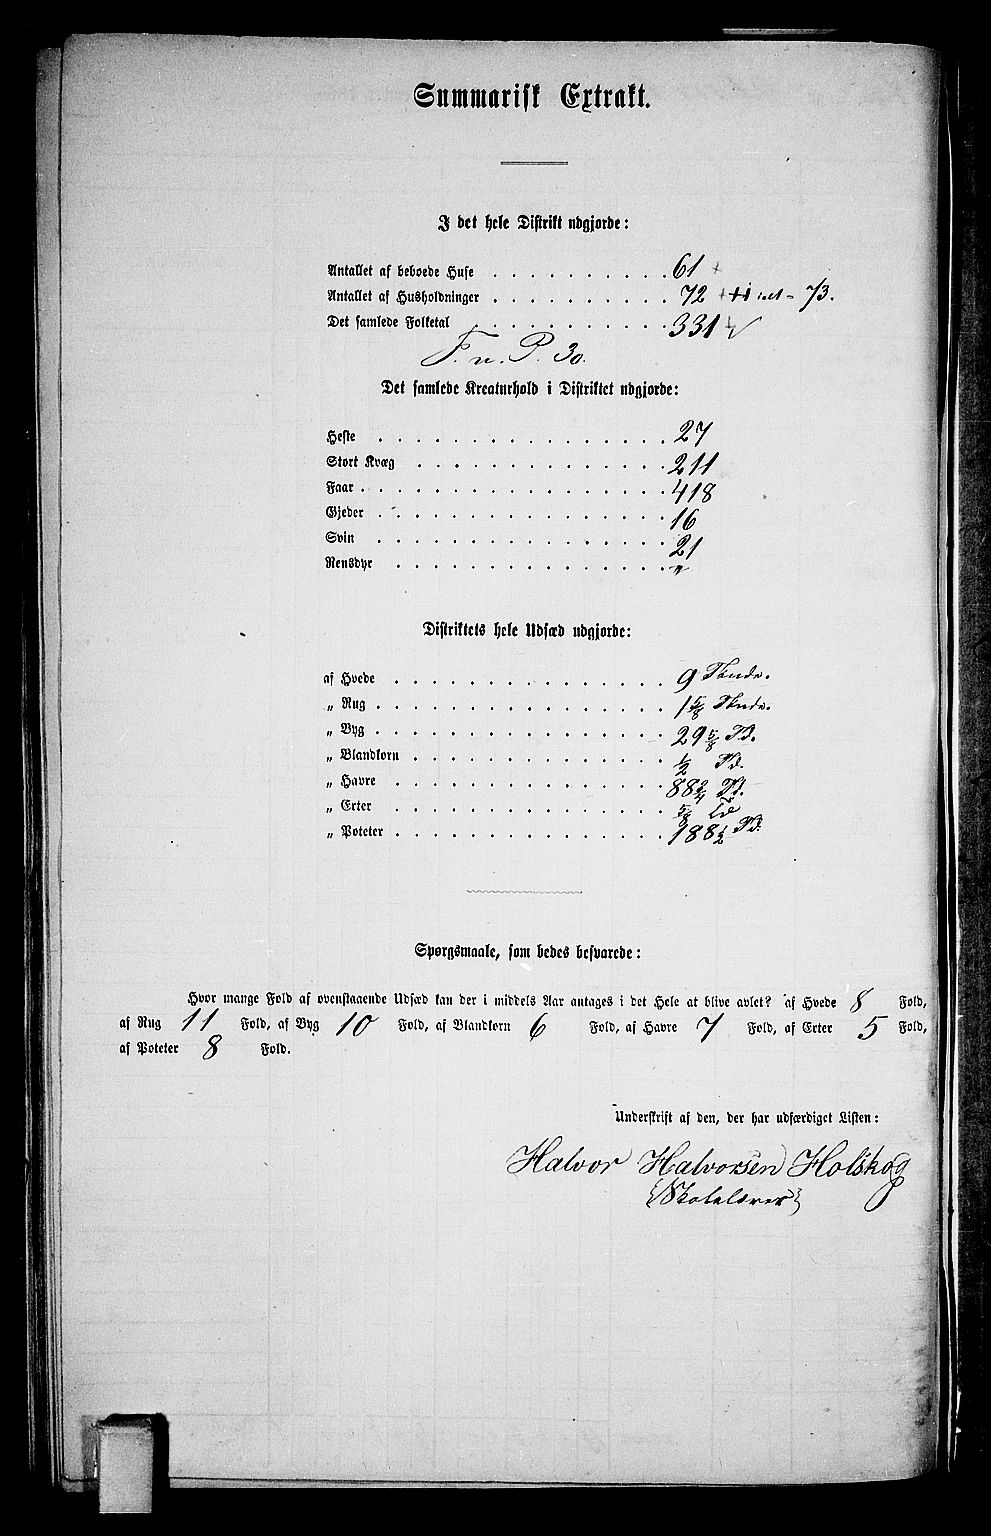 Summarisk Extrakt.
I det hele Distrikt udgjorde:
Antallet af beboede Huse . . . . . . . . . . 61 +
Antallet af Husholdninger . . . . . . . . . . 72 + 73.
Det samlede Folketal . . . . . . . . . . 331
F. n. P. 30.
Det samlede Kreaturhold i Distriktet udgjorde:
Heste . . . . . . . . . . 27
Stort Kvæg . . . . . . . . . . 211
Faar . . . . . . . . . . 418
Gjeder . . . . . . . . . . 16
Svin . . . . . . . . . . 21
Rensdyr . . . . . . . . . . "
Distriktets hele Udsæd udgjorde:
af Hvede . . . . . . . . . . 9 Tönde.
„ Rug . . . . . . . . . . 1 5/8 Tönde.
„ Byg . . . . . . . . . . 29 5/8 Td.
„ Blandkorn . . . . . . . . . . 1/2 Td.
„ Havre . . . . . . . . . . 88 3/4 Td.
„ Erter . . . . . . . . . . 5/8 Td
„ Poteter . . . . . . . . . . 188 1/2 Td.
Spørgsmaale, som bedes besvarede:
Hvor mange Fold af ovenstaaende Udsæd kan der i middels Aar antages i det Hele at blive avlet? af Hvede 8 Fold,
af Rug 11 Fold, af Byg 10 Fold, af Blandkorn 6 Fold, af Havre 7 Fold, af Erter 5 Fold,
af Poteter 8 Fold.
Underskrift af den, der har udfærdiget Listen:
Halvor Halvorsen Holskog
{Skolelærer}